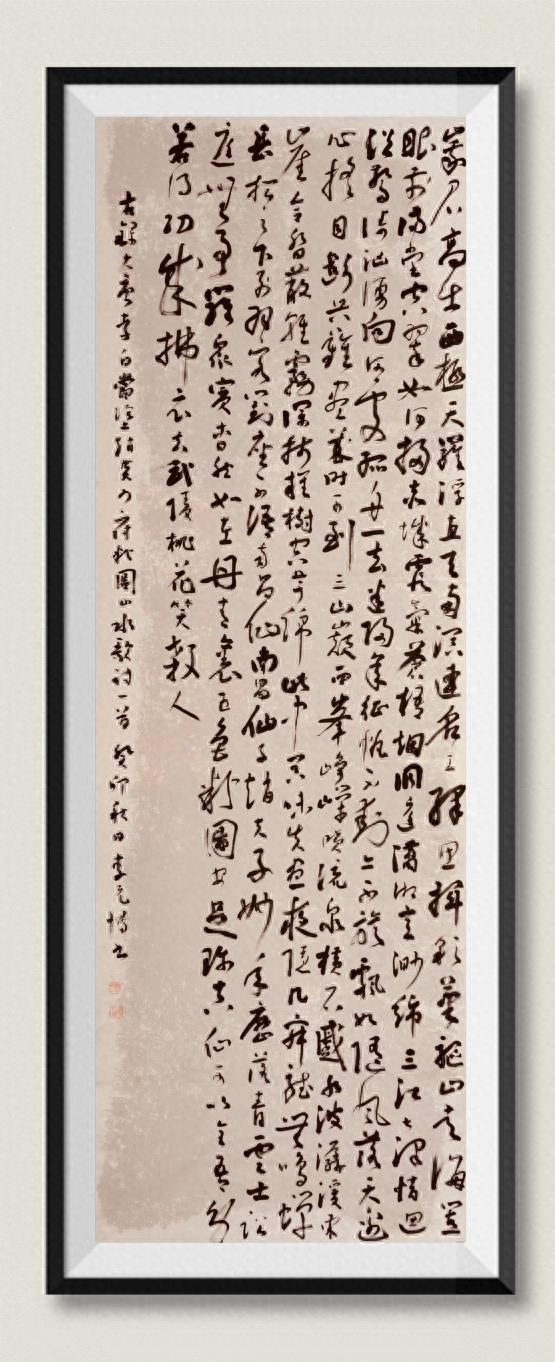 峨眉高出西極天羅浮直與南溟連名工繹思揮彩筆驅山走海置
眼前滿堂空翠如可掃赤城霞氣蒼梧烟洞庭瀟湘意渺綿三江七澤情洄
沿驚濤洶湧向何處孤舟一去迷歸年征帆不動亦不旋飄如隨風落天邊
心搖目斷興難盡幾時可到三山巔西峰崢嶸噴流泉橫石蹙水波潺湲東
崖合沓蔽輕霧深林雜樹空芊綿此中冥昧失晝夜隱几寂聽無鳴蟬
長松之下列羽客對座不語南昌仙南昌仙人趙夫子妙年歷落青雲士訟
庭無事羅衆賓杳然如在丹青裏五色粉圖安足珍真仙可以全吾身
若得功成拂衣去武陵桃花笑殺人
右錄大唐李白當塗趙炎少府粉圖山水歌詩一首 癸卯秋日李元博書